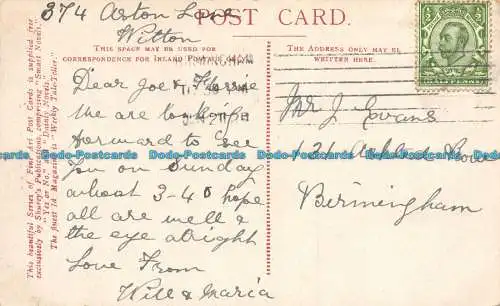 374 Aston Lane
Witton
POST CARD.
THIS SPACE MAY BE USED FOR
CORRESPONDENCE FOR INLAND POSTAGE ONLY
THE ADDRESS ONLY MAY BE
WRITTEN HERE.
This beautiful Series of Fine Art Post Cards is supplied free
exclusively by Shurey's Publications, comprising "Smart Novels,"
"Yes or No," and "Dainty Novels."
The finest 1d. Magazine is "Weekly Tale-Teller."
Dear Joe & Florrie
We are looking
forward to see
you on Sunday
about 3-40 hope
all are well &
the eye alright
Love From
Will & Maria
Mr J. Evans
Road
Birmingham
Dodo-Postcards Dodo-Postcards Dodo-Postcards Dodo-Postcards